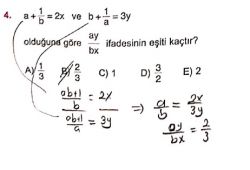 4. a + 1/b = 2x ve b + 1/a = 3y
olduğuna göre ay/bx ifadesinin eşiti kaçtır?
A) 1/3 B) 2/3 C) 1 D) 3/2 E) 2
(ab+1)/b = 2x
(ab+1)/a = 3y
=> a/b = 2x/3y
ay/bx = 2/3